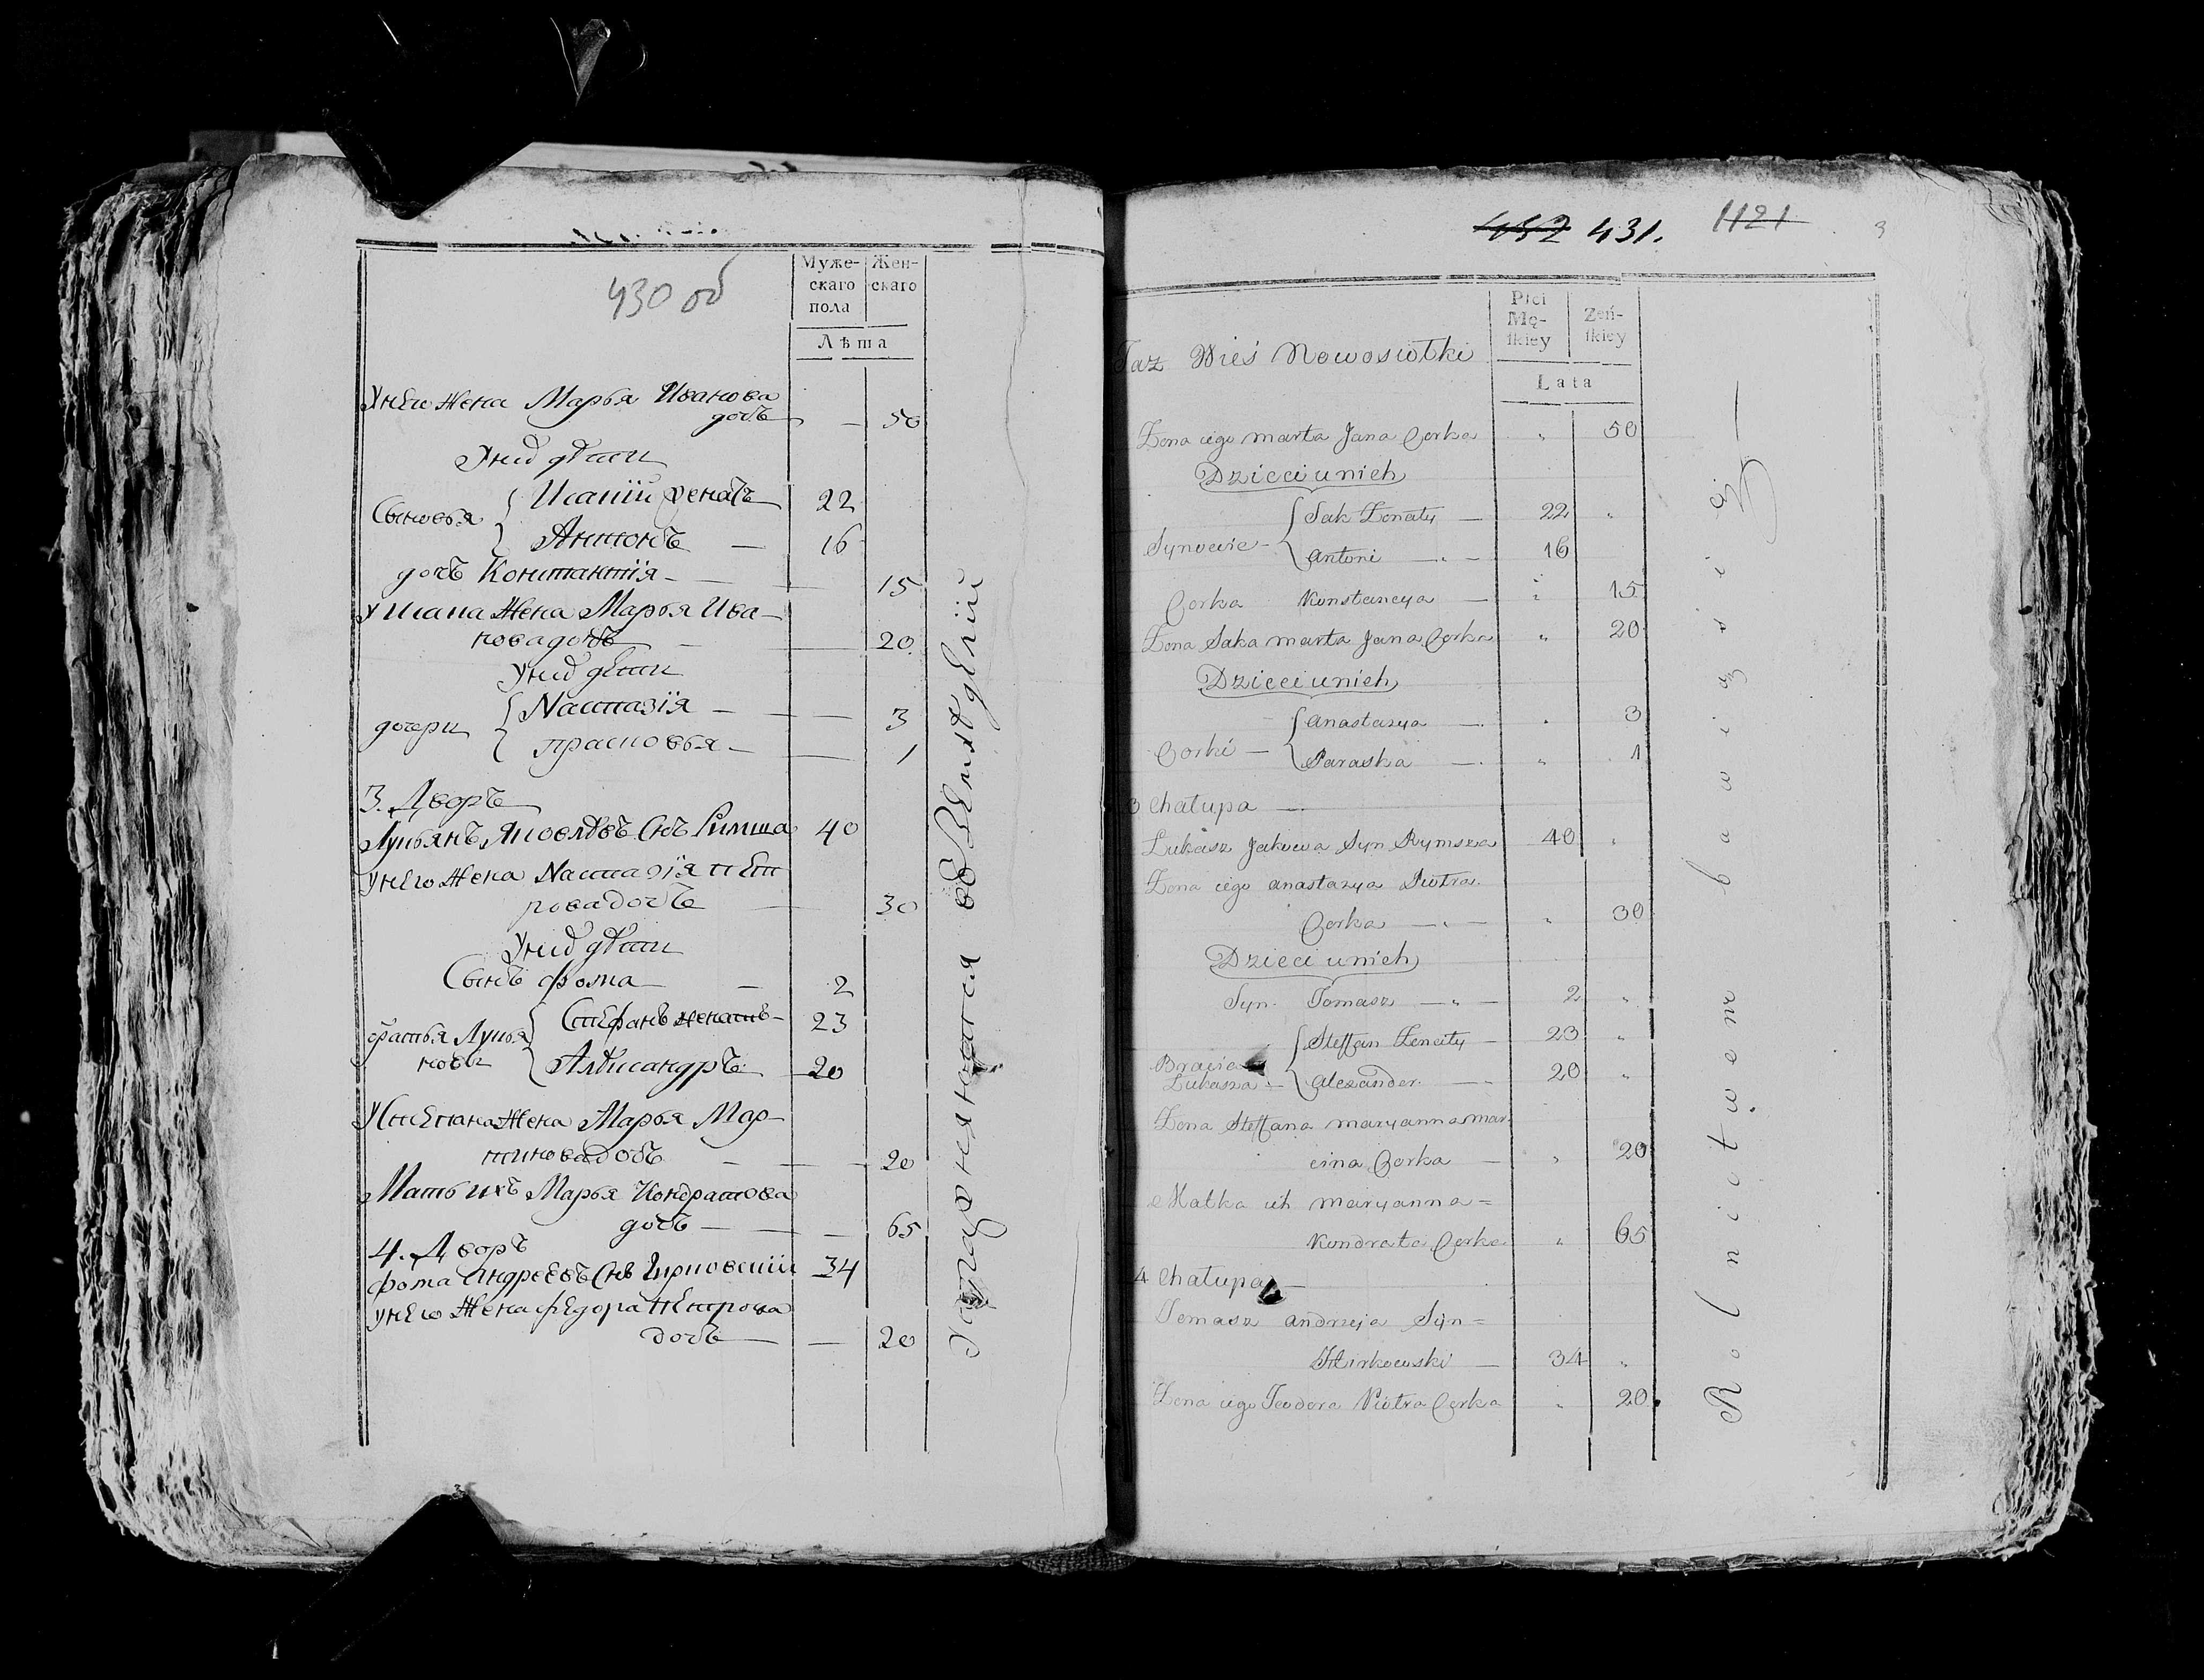 430 об
Муже-
скаго
пола
Жен-
скаго
Лѣта
Унего Жена Марья Иванова
дочь — 50
Унихъ дѣти
Сыновья
Исакій женатъ 22
Антонъ — 16
дочь Константія — 15
У Исака Жена Марья Ива-
нова дочь — 20
Унихъ дѣти
дочери
Настазія — 3
Прасковья — 1
3. Дворъ
Лукьянъ Яковлевъ Снъ Римша 40
Унего Жена Настазія Пет
рова дочь — 30
Унихъ дѣти
Сынъ Фома — 2
братья Лукья
новы
Стефанъ женатъ — 23
Александръ 20
У Степана Жена Марья Мар-
тинова дочь — 20
Мать ихъ Марья Кондратова
дочь — 65
4. Дворъ
Фома Андреевъ Снъ 34
Унего Жена Федора Петрова
дочь — 20
въ Земледѣліи
452 431. 1121
3
Płci
Mę-
skiey
Zeń-
skiey
Lata
Taż Wieś Nowosiołki
Żona iego Marta Jana Corka " 50
Dzieci u nich
Synowie —
Sak Żonaty — 22 "
Antoni — 16
Corka Konstancya — " 15
Żona Saka Marta Jana Corka " 20
Dzieci u nich
Corki —
Anastazya — " 3
Paraska — " 1
3 Chałupa —
Łukasz Jakowa Syn Rymsza 40 "
Żona iego Anastazya Piotra
Corka — " 30
Dzieci u nich
Syn Tomasz — 2 "
Bracia
Łukasza —
Steffan Żonaty — 23 "
Alexander — 20 "
Żona Steffana Maryanna Mar
cina Corka — " 20
Matka ich Maryanna =
Kondrata Corka " 65
4 Chałupa —
Tomasz Andrzeja Syn =
34 "
Żona iego Teodora Piotra Corka " 20
Rolnictwem bawią się —